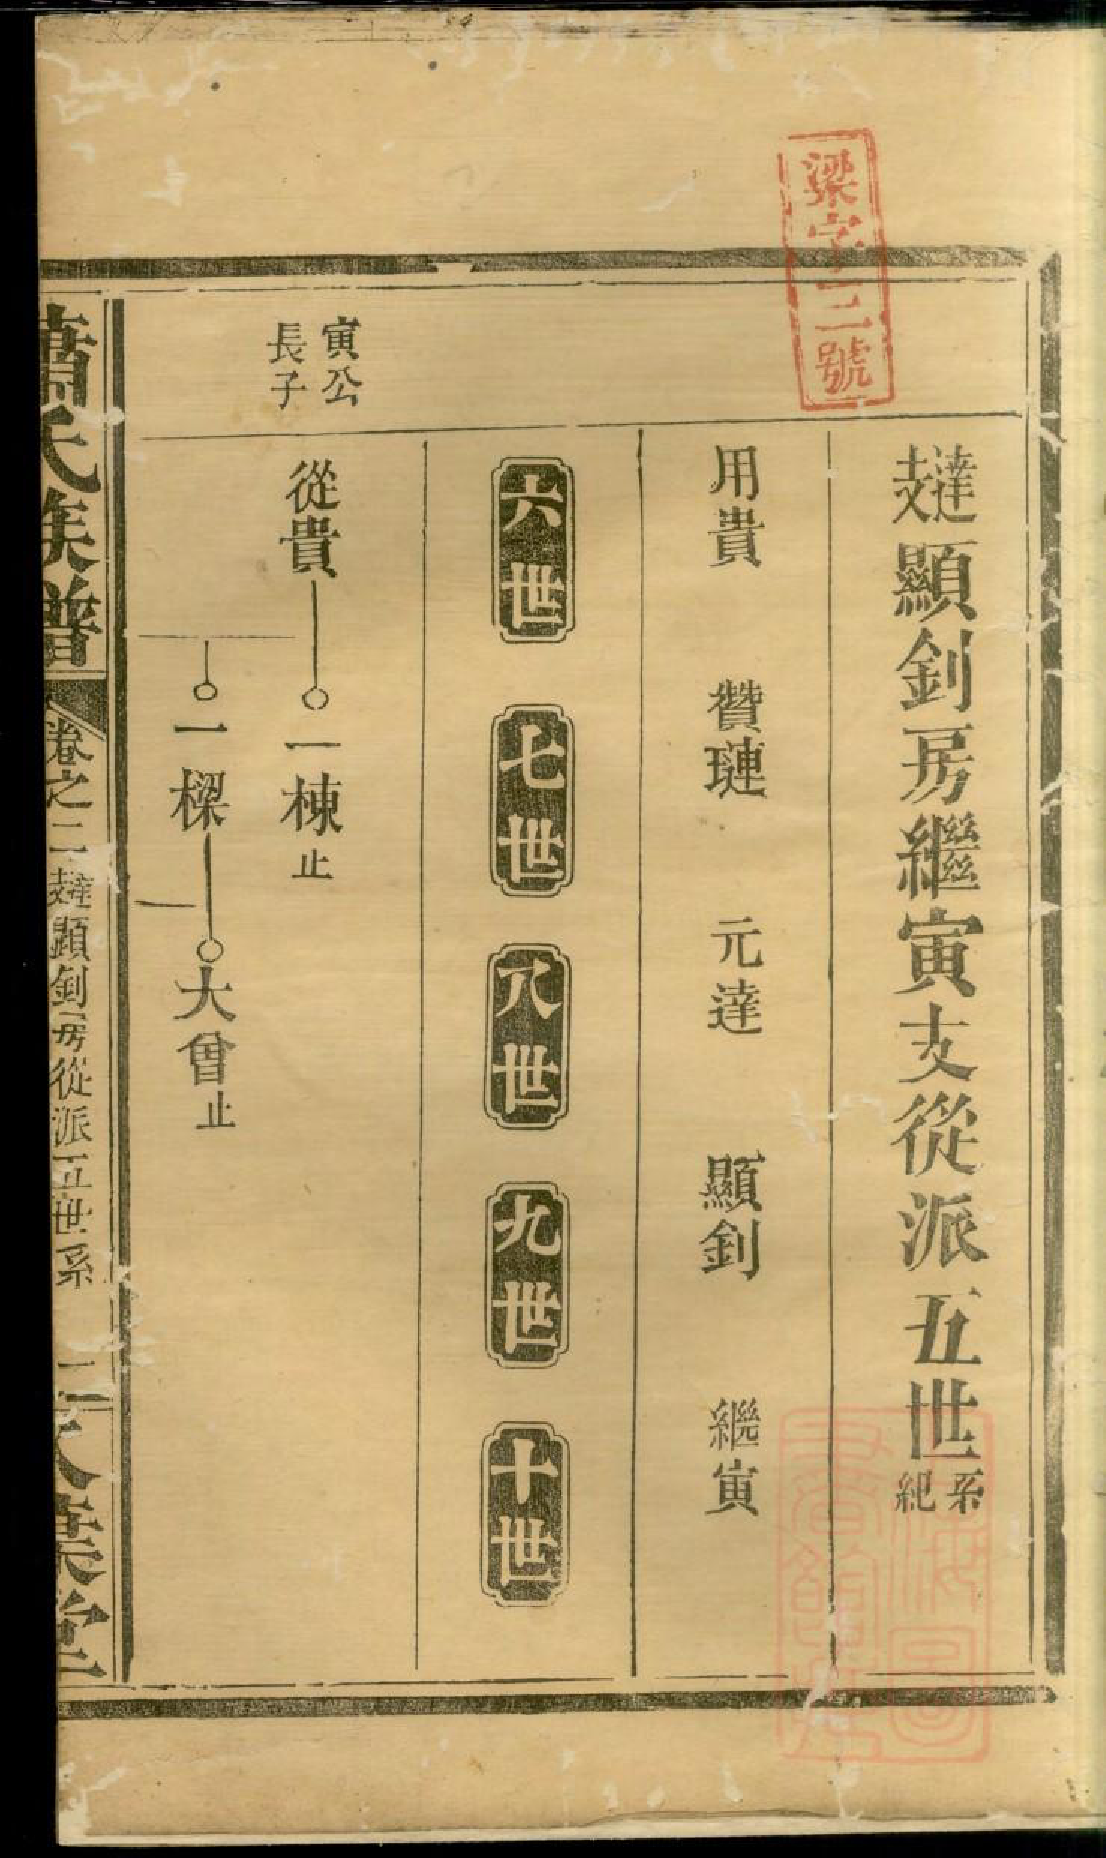 梁字二號
𡔷達顯釗房繼寅支從派五世系紀
用貴 贊璉 元達 顯釗 繼寅
六世 七世 八世 九世 十世
寅公長子
從貴 一棟止
一樑 大曾止
蕭氏族譜 卷之二 顯釗房從派五世系 二 八葉堂